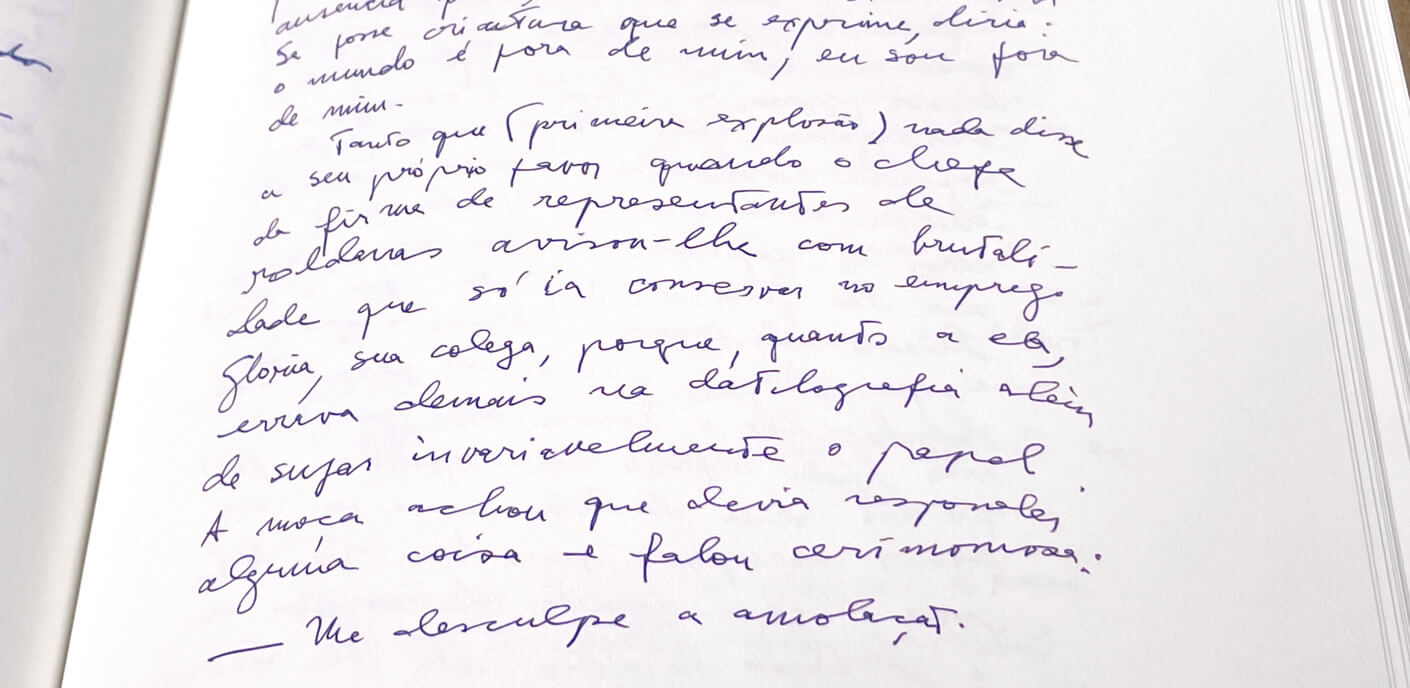 ausencia
Se fosse criatura que se exprime, diria:
o mundo é fora de mim, eu sou fora
de mim.
Tanto que (primeira explosão) nada disse
a seu próprio favor quando o chefe
da firma de representantes de
roldanas avisou-lhe com brutali-
dade que só ia conservar no emprego
Glória, sua colega, porque, quanto a ela,
errava demais na datilografia além
de sujar invariavelmente o papel.
A moça achou que devia responder
alguma coisa e falou cerimoniosa:
— Me desculpe a amolação.